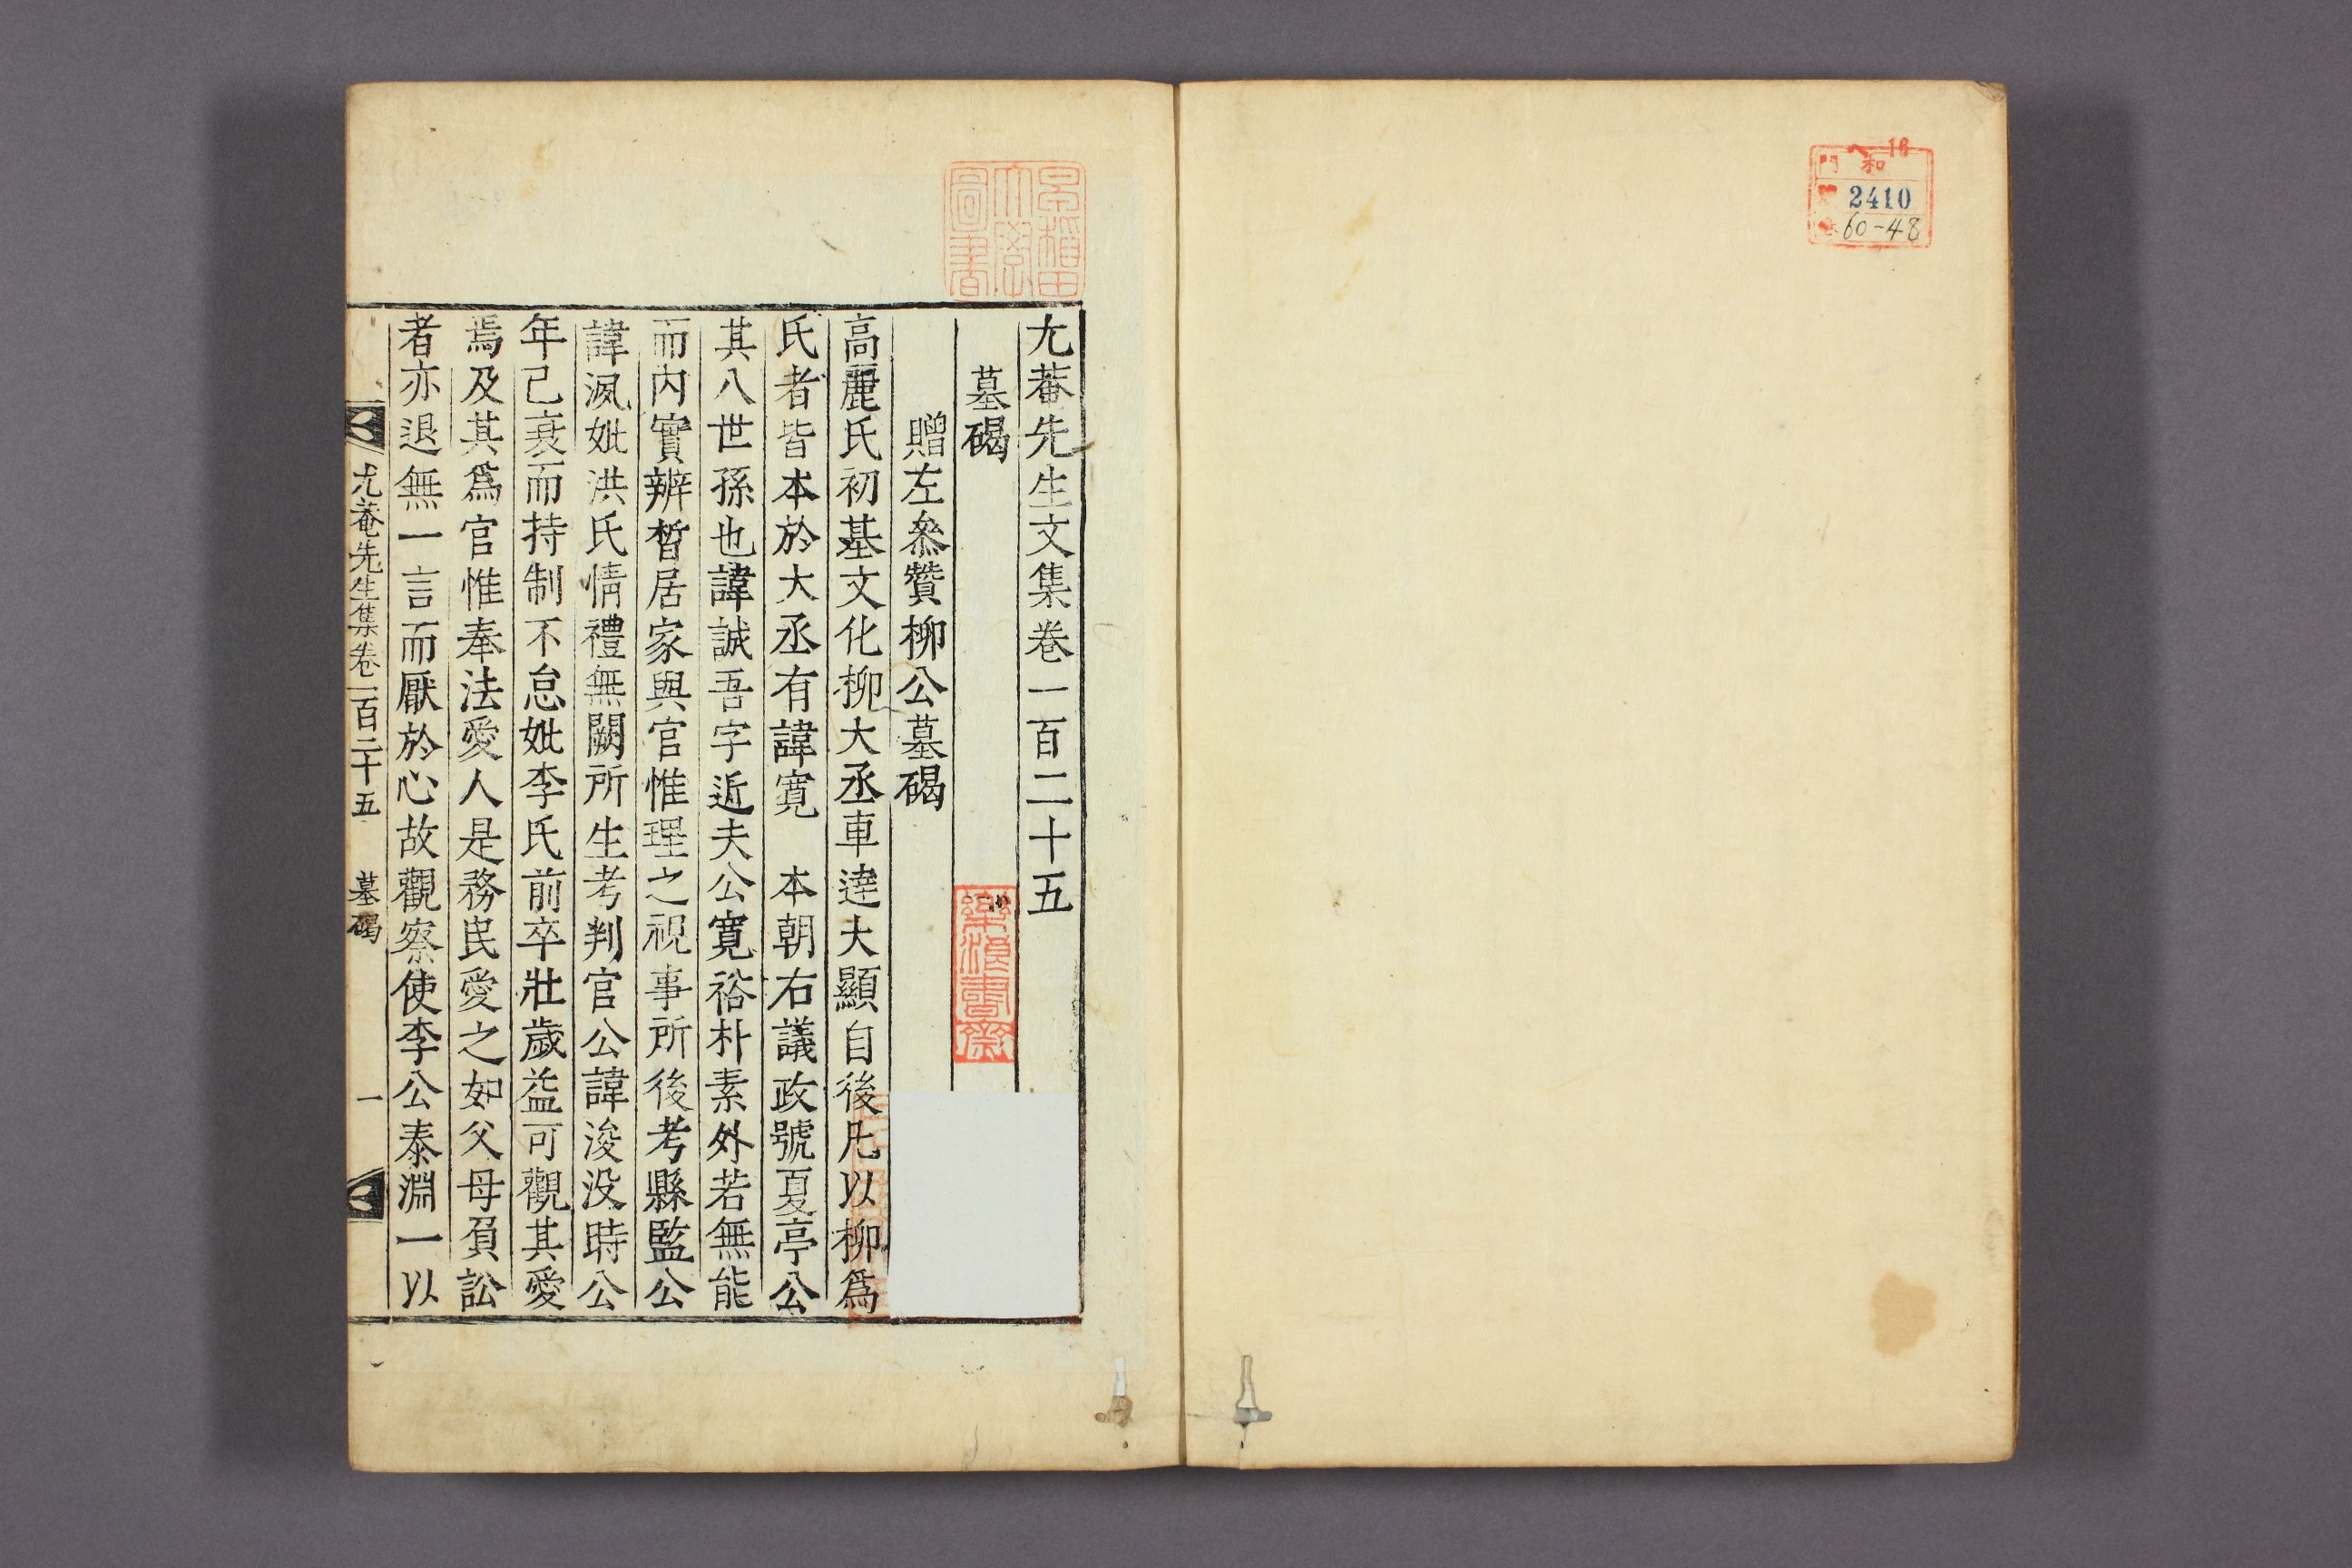 ヘ 16
門 和
2410
60-48
早稲田
大學
圖書
尤菴先生文集卷一百二十五
墓碣
樂浪書齋
贈左叅贊柳公墓碣
高麗氏初基文化柳大丞車達大顯自後凡以柳爲
氏者皆本於大丞有諱寬 本朝右議政號夏亭公
其八世孫也諱誠吾字近夫公寬裕朴素外若無能
而內實辨晳居家與官惟理之視事所後考縣監公
諱洬妣洪氏情禮無闕所生考判官公諱浚没時公
年已衰而持制不怠妣李氏前卒壯歲益可觀其愛
焉及其爲官惟奉法愛人是務民愛之如父母負訟
者亦退無一言而厭於心故觀察使李公泰淵一以
尤菴先生集卷一百二十五 墓碣 一